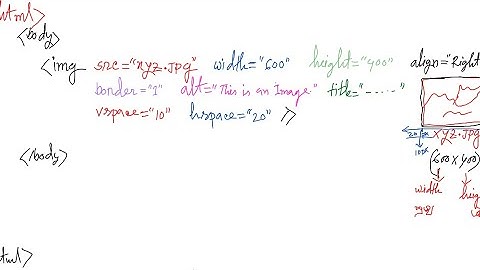 html>
<body>
<img src="xyz.jpg" width="600" height="400" align="Right
border="1" alt="This is an Image" title="-----"
vspace="10" hspace="20" >
xyz.jpg
(600x400)
width heig
</body>
tml>